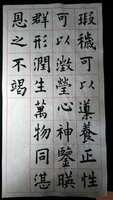 瑕穢可以導養正性
可以澂瑩心神鑒暎
群形潤生萬物同湛
恩之不竭